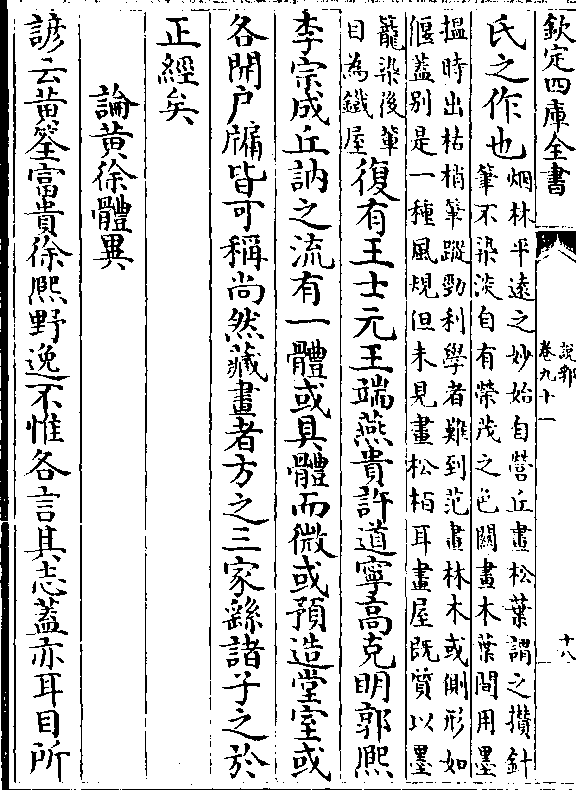 欽定四庫全書
說郛
卷九十一
十八
氏之作也
烟林平遠之妙始自營丘畫松葉謂之攢針
筆不染淡自有榮茂之色關畫木葉間用墨
搵時出枯梢筆蹤勁利學者難到范畫林木或側形如
偃蓋别是一種風䂓但未見畫松栢耳畫屋既質以墨
籠染後軰
目為鐵屋
復有王士元王端燕貴許道寧高克明郭熙
李宗成丘訥之流有一體或具體而微或預造堂室或
各開户牗皆可稱尚然藏畫者方之三家繇諸子之於
正經矣
論黄徐體異
諺云黄筌富貴徐熙野逸不惟各言其志蓋亦耳目所